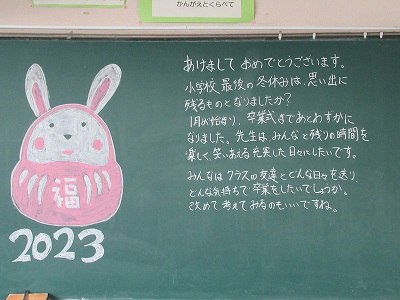 かんがえとくらべて
あけまして おめでとうございます。
小学校 最後の冬休みは、思い出に
残るものとなりましたか？
1月が始まり、卒業式まであとわずかに
なりました。先生は、みんなと残りの時間を
楽しく、笑いあえる充実した日々にしたいです。
みんなは クラスの友達とどんな日々を送り、
どんな気持ちで卒業をしたいでしょうか。
改めて考えてみるのもいいですね。
福
2023